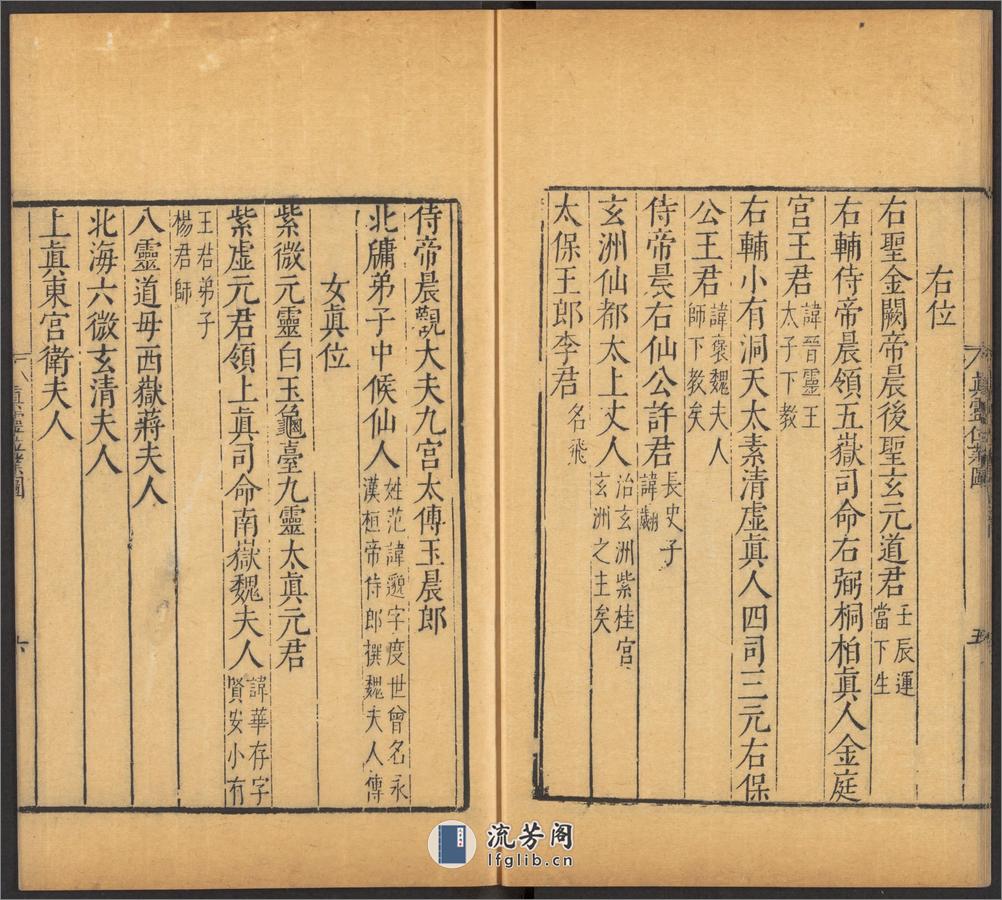 右位
右聖金闕帝晨後聖玄元道君壬辰運當下生
右輔侍帝晨領五嶽司命右弼桐柏眞人金庭
宮王君諱晉靈王太子下教
右輔小有洞天太素清虛眞人四司三元右保
公王君諱褒魏夫人師下教矣
侍帝晨右仙公許君長史子諱翽
玄洲仙都太上丈人治玄洲紫桂宮玄洲之主矣
太保王郎李君名飛
眞靈位業圖
五
侍帝晨觀大夫九宮太傅玉晨郎
北牖弟子中候仙人姓范諱邈字度世曾名永漢桓帝侍郎撰魏夫人傳
女眞位
紫微元靈白玉龜臺九靈太眞元君
紫虛元君領上眞司命南嶽魏夫人諱華存字賢安小有
王君弟子楊君師
八靈道母西嶽蔣夫人
北海六微玄清夫人
上眞東宮衛夫人
眞靈位業圖
六
流芳阁
lfglib.cn